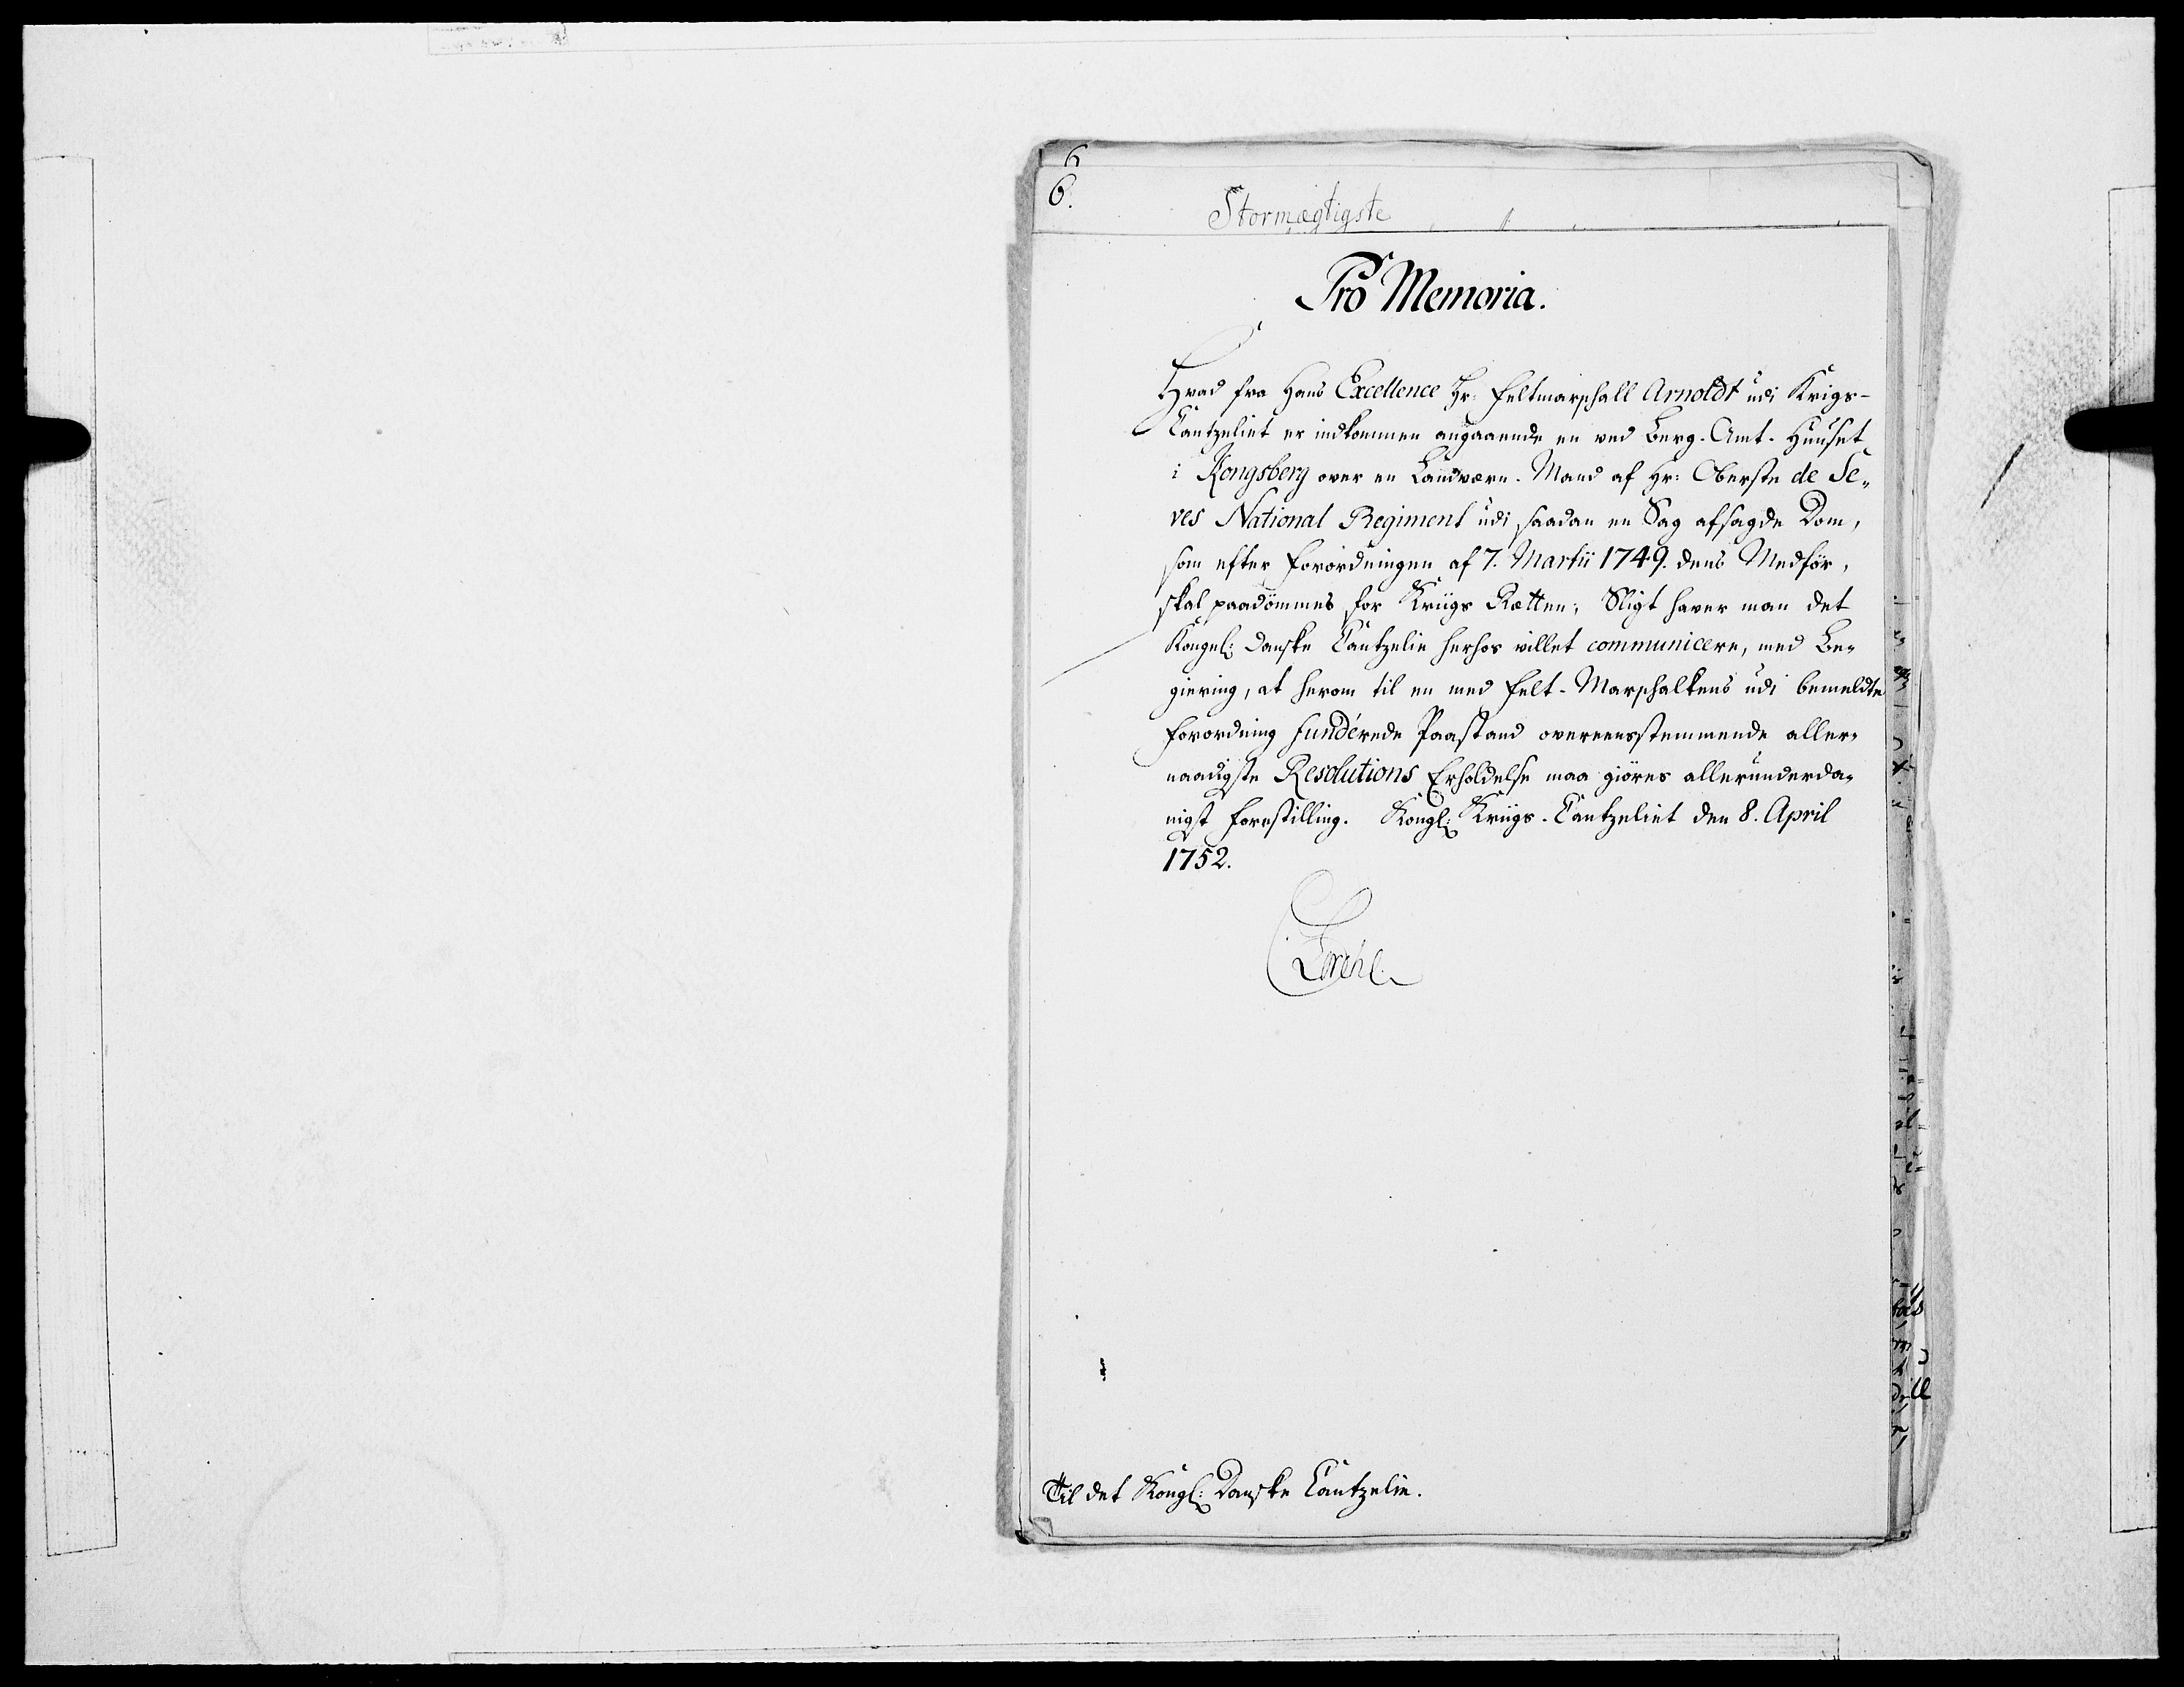 6
6.
Stormægtigste
Pro Memoria.
Hvad fra Hans Excellence Hr: Feltmarschall Arnoldt udi Krigs-
Cantzeliet er indkommen angaaende en ved Berg-Amt-Huuset
i Kongsberg over en Landværn-Mand af Hr: Oberste de Se„
ves National Regiment udi saadan en Sag afsagde Dom,
som efter Forordningen af 7. Martii 1749. dens Medför,
skal paadömmes for Kriigs Rætten; Sligt haver man det
Kongel: Danske Cantzelie herhos villet communicere, med Be„
giering, at herom til en med Felt-Marschalkens udi bemeldte
Forordning funderede Paastand overeensstemmende aller„
naadigste Resolutions Erholdelse maa giöres allerunderda„
nigst Forestilling. Kongl: Kriigs-Cantzeliet den 8. April
1752.
Til det Kongl: Danske Cantzelie.